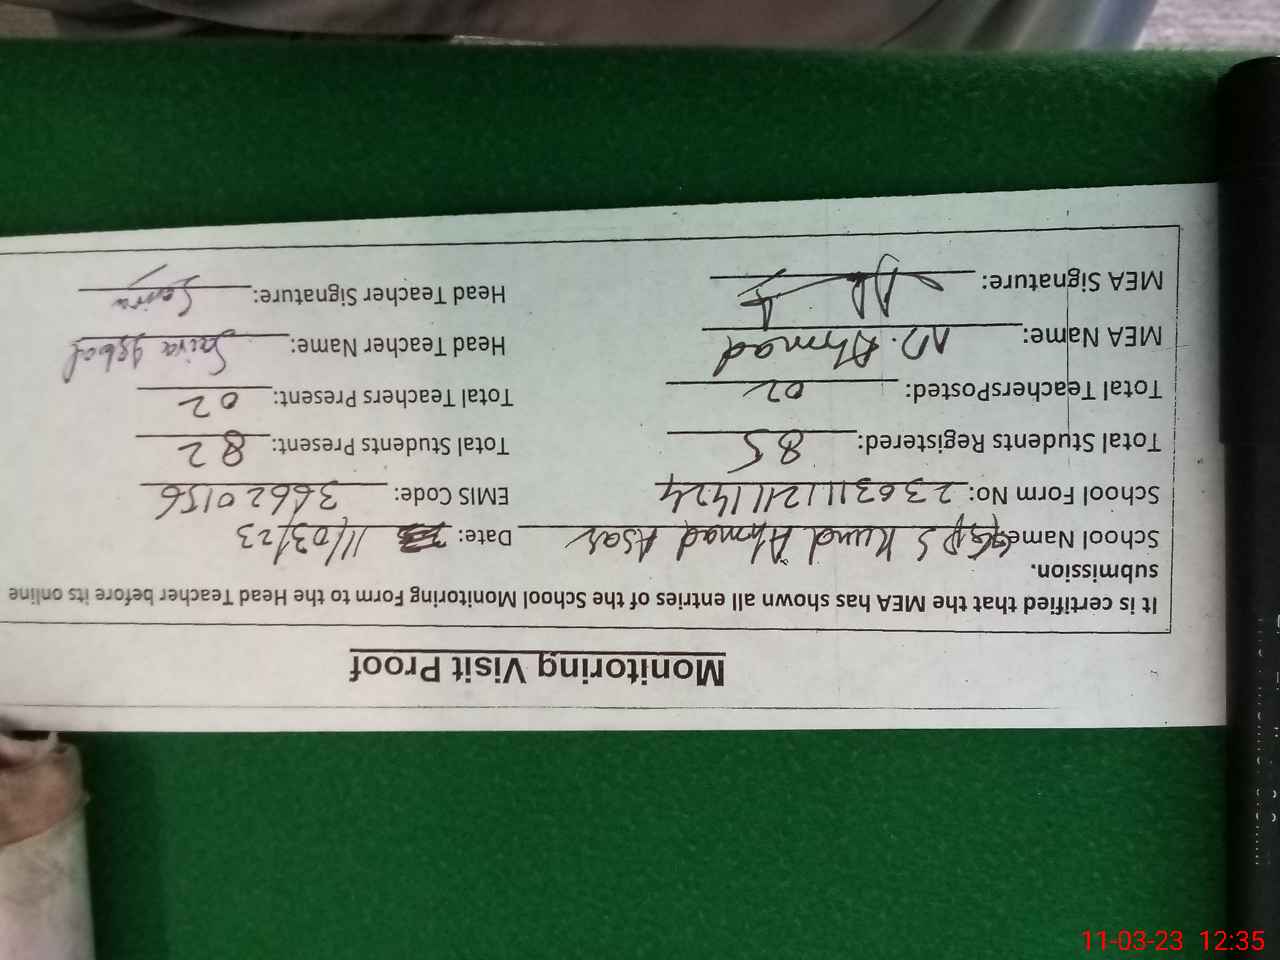 Monitoring Visit Proof
It is certified that the MEA has shown all entries of the School Monitoring Form to the Head Teacher before its online
submission.
School Name: GGPS Kund Ahmad Asar Date: 11/03/23
School Form No: EMIS Code: 36620156
Total Students Registered: 85 Total Students Present: 82
Total TeachersPosted: 02 Total Teachers Present: 02
MEA Name: M. Ahmad Head Teacher Name: Saira Iqbal
MEA Signature: Head Teacher Signature: Saira
11-03-23 12:35